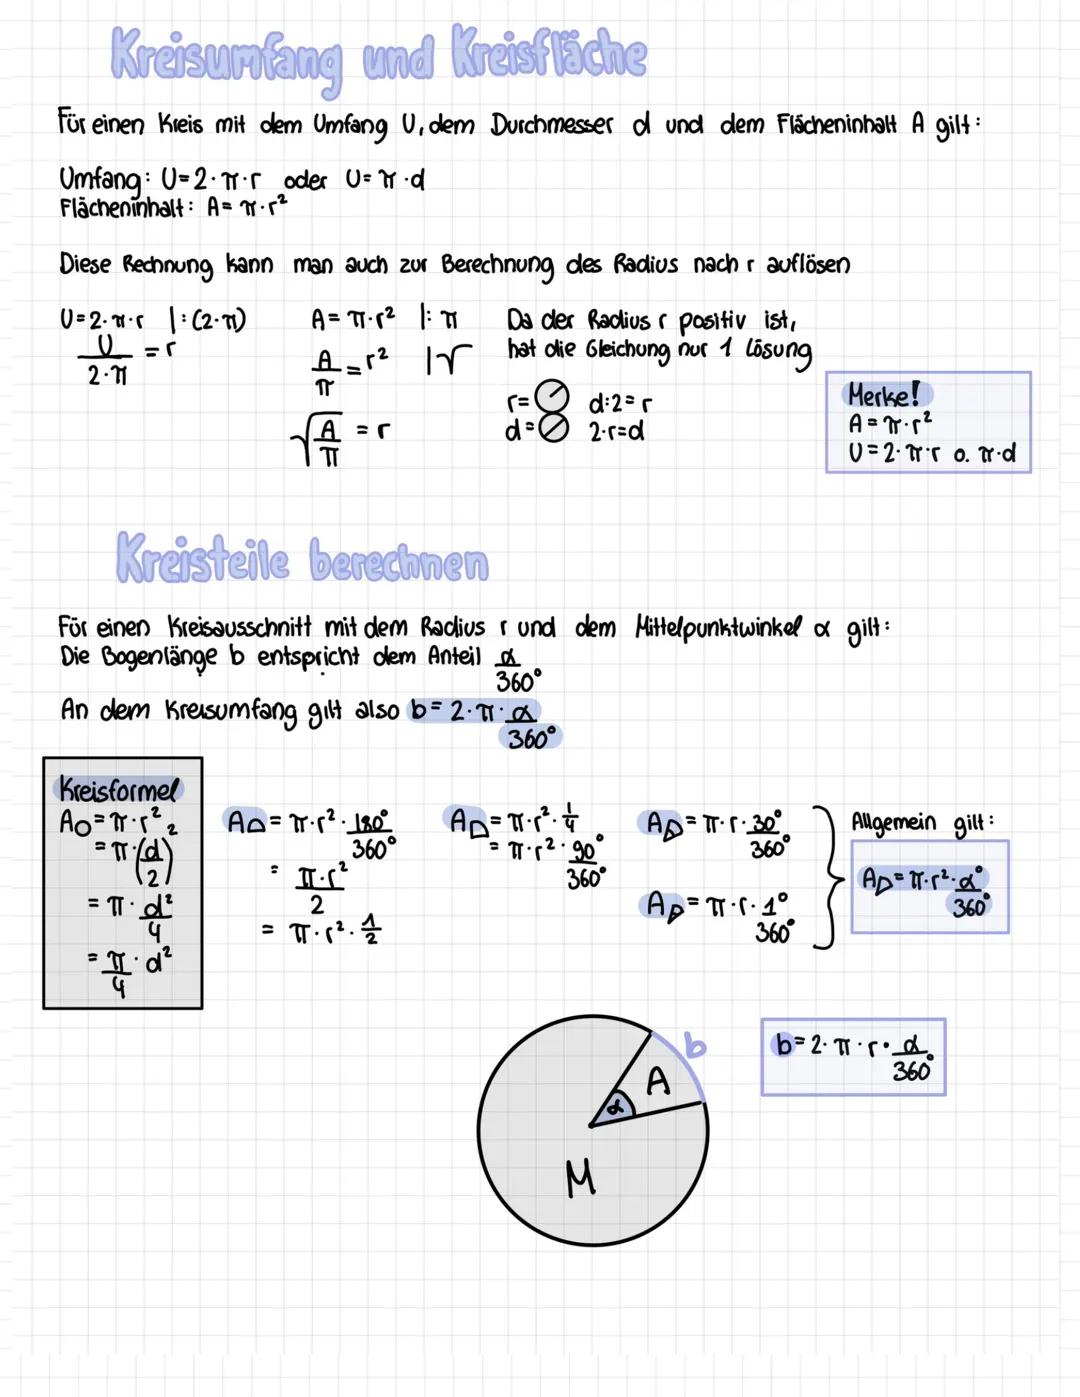 Kreisumfang und Kreisfläche
Für einen Kreis mit dem Umfang U, dem Durchmesser d und dem Flächeninhalt A gilt:
Umfang: U=2·π·r oder U=π·d
Flächeninhalt: A=π·r²
Diese Rechnung kann man auch zur Berechnung des Radius nach r auflösen
U=2·π·r |:(2·π)
U/2·π = r
A=π·r² |:π
A/π = r² |√
√A/π = r
Da der Radius r positiv ist,
hat die Gleichung nur 1 Lösung
r= d:2=r
d= 2·r=d
Merke!
A=π·r²
U=2·π·r o. π·d
Kreisteile berechnen
Für einen Kreisausschnitt mit dem Radius r und dem Mittelpunktwinkel α gilt:
Die Bogenlänge b entspricht dem Anteil α/360°
An dem Kreisumfang gilt also b=2·π·α/360°
Kreisformel
A○=π·r²
=π·(d/2)²
=π·d²/4
=π/4·d²
A=π·r²·180°/360°
=π·r²/2
=π·r²·1/2
A=π·r²·1/4
=π·r²·90°/360°
A=π·r·30°/360°
A=π·r·1°/360°
Allgemein gilt:
A=π·r²·α°/360°
b
A
α
M
b=2·π·r·α/360°